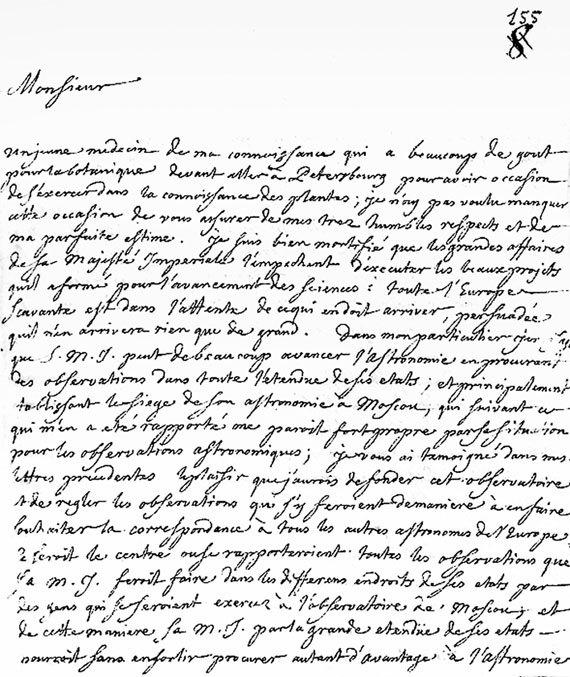 155
8
Monsieur
un jeune medecin de ma connoissance qui a beaucoup de gout
pour la botanique devant aller à Petersbourg pour avoir occasion
de s'exercer dans la connoissance des plantes; je n'ay pas voulu manquer
cette occasion de vous assurer de mes trez humbles respects et de
ma parfaite estime. je suis bien mortifié que les grandes affaires
de sa Majesté Imperiale l'empechent d'executer les beaux projets
qu'il a formé pour l'avancement des sciences: toute l'Europe
scavante est dans l'attente de ce qui en doit arriver, persuadée
qu'il n'en arrivera rien que de grand. Dans mon particulier
que S. M. I. peut de beaucoup avancer l'astronomie en procurant
des observations dans toute l'etendue de ses etats; et principalement
etablissant le siege de son astronomie à Moscou, qui suivant ce
qui m'en a eté rapporté me paroit fort propre par sa situation
pour les observations astronomiques; je vous ai temoigné dans mes
lettres precedentes le plaisir que j'aurois de fonder cet observatoire
et de regler les observations qui s'y feroient de maniere à en faire
la correspondance à tous les autres astronomes de l'Europe
seroit le centre ou se rapporteroient toutes les observations que
sa M. I. feroit faire dans les differens endroits de ses etats par
des gens qui se seroient exercez à l'observatoire de Moscou; et
de cette maniere sa M. I. par la grande etendue de ses etats
pourroit sans en sortir procurer autant d'avantage à l'astronomie